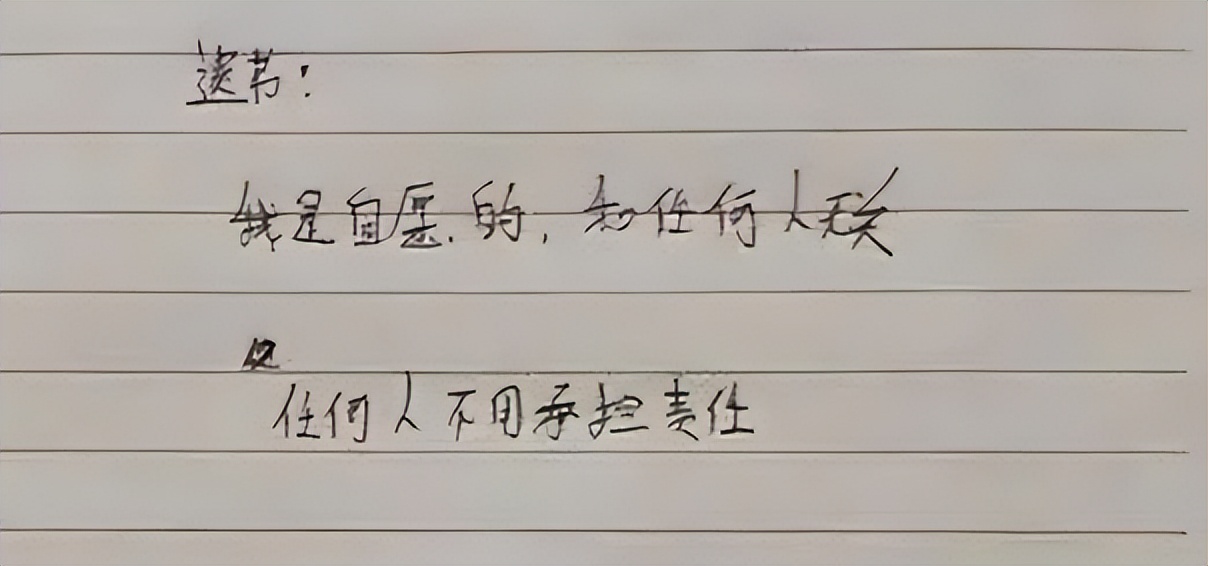 遗书:
我是自愿的,和任何人无关
任何人不用承担责任